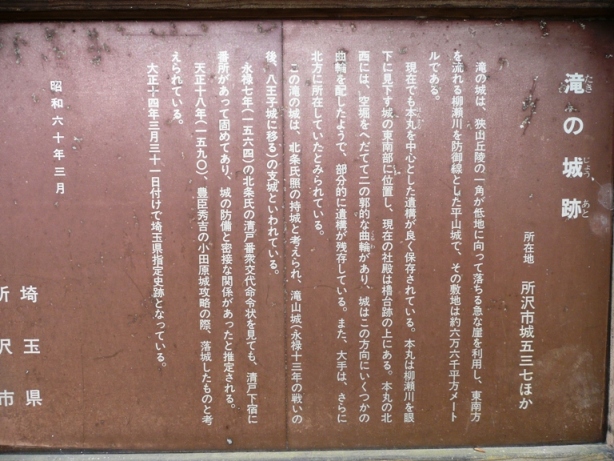 滝の城跡
たき じょう あと
所在地 所沢市城五三七ほか
滝の城は、狭山丘陵の一角が低地に向って落ちる急な崖を利用し、東南方
を流れる柳瀬川を防御線とした平山城で、その敷地は約六万六千平方メート
ルである。
現在でも本丸を中心とした遺構が良く保存されている。本丸は柳瀬川を眼
下に見下す城の東南部に位置し、現在の社殿は櫓台跡の上にある。本丸の北
西には、空堀をへだてて二の郭的な曲輪があり、城はこの方向にいくつかの
曲輪を配したようで、部分的に遺構が残存している。また、大手は、さらに
北方に所在していたとみられている。
この滝の城は、北条氏照の持城と考えられ、滝山城(永禄十三年の戦いの
後、八王子城に移る)の支城といわれている。
永禄七年(一五六四)の北条氏の清戸番衆交代命令状を見ても、清戸下宿に
番所があって固めてあり、城の防備と密接な関係があったと推定される。
天正十八年(一五九〇)、豊臣秀吉の小田原城攻略の際、落城したものと考
えられている。
大正十四年三月三十一日付けで埼玉県指定史跡となっている。
昭和六十年三月
埼玉県
所沢市